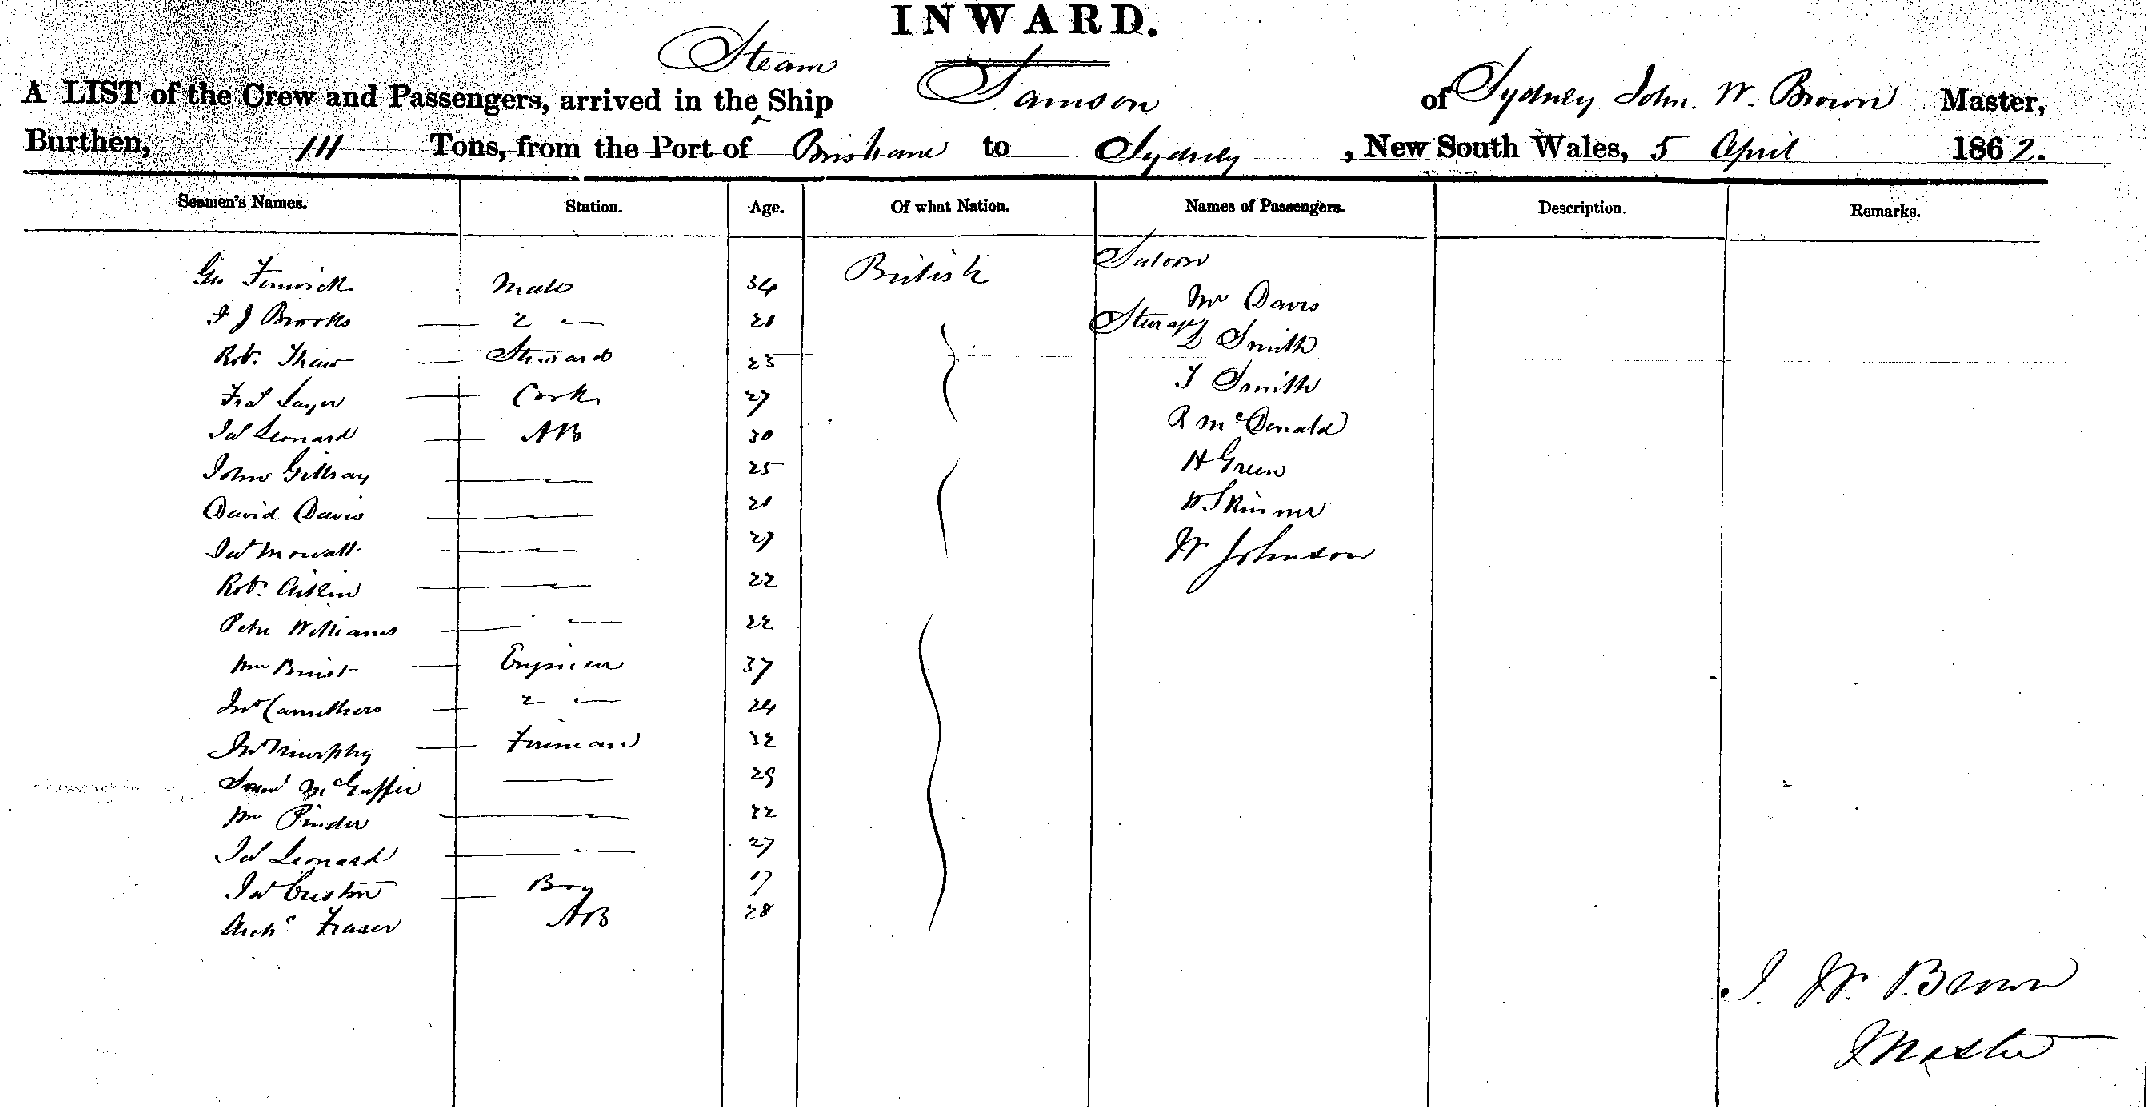 INWARD.
A LIST of the Crew and Passengers, arrived in the Steam Ship Samson of Sydney John. W. Brown Master,
Burthen, 111 Tons, from the Port of Brisbane to Sydney, New South Wales, 5 April 1862.
Seamen's Names. Station. Age. Of what Nation. Names of Passengers. Description. Remarks.
Saloon
Geo Fenwick Mate 34 British Mr Davis
J Brooks — 2 — Steerage
Robt Shaw — Steward 23 Smith
Fras Sayer — Cook 27 T Smith
Jas Leonard — AB 30 R McDonald
John Gillray — 25 H Green
David Davis — Skinner
Jno Mowatt — W Johnson
Robt Aitkin — 22
Peter Williams — 22
Wm Buist — Engineer 37
Jno Carruthers — 2 — 24
Jno Murphy — Fireman 32
Saml McGuffie — 29
Wm Pinder — 32
Jas Leonard — 27
Jno — Boy 17
Archd Fraser AB 28
J. W. Brown
Master